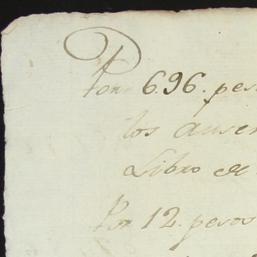 Por 696. pes
los ausen
Libro de
Por 12. pesos